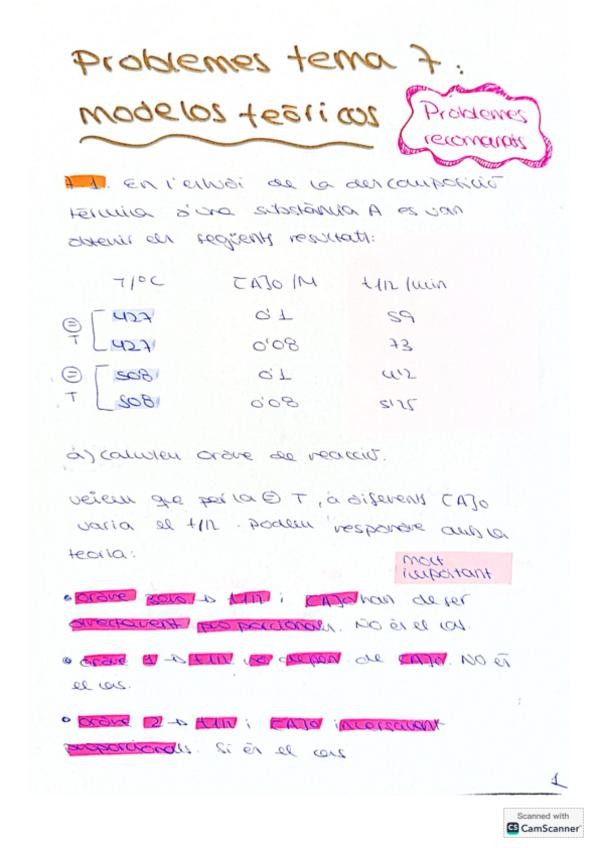 Problemes tema 7:
modelos teòricos
Problemes
recomanats
7.1. En l'estudi de la descomposició
tèrmica d'una substància A es van
obtenir els següents resultats:
T/°C [A]0/M t1/2/min
= T 427 0'1 59
427 0'08 73
= T 508 0'1 4'2
508 0'08 5'25
a) Calculeu ordre de reacció.
veiem que per la = T, a diferents [A]0
varia el t1/2. Podem respondre amb la
teoria:
molt
important
• ordre zero → t1/2 i [A]0 han de ser
directament proporcionals. NO és el cas.
• ordre 1 → t1/2 no depen de [A]0. NO és
el cas.
• ordre 2 → t1/2 i [A]0 inversament
proporcionals. Sí és el cas
1
Scanned with
CS CamScanner